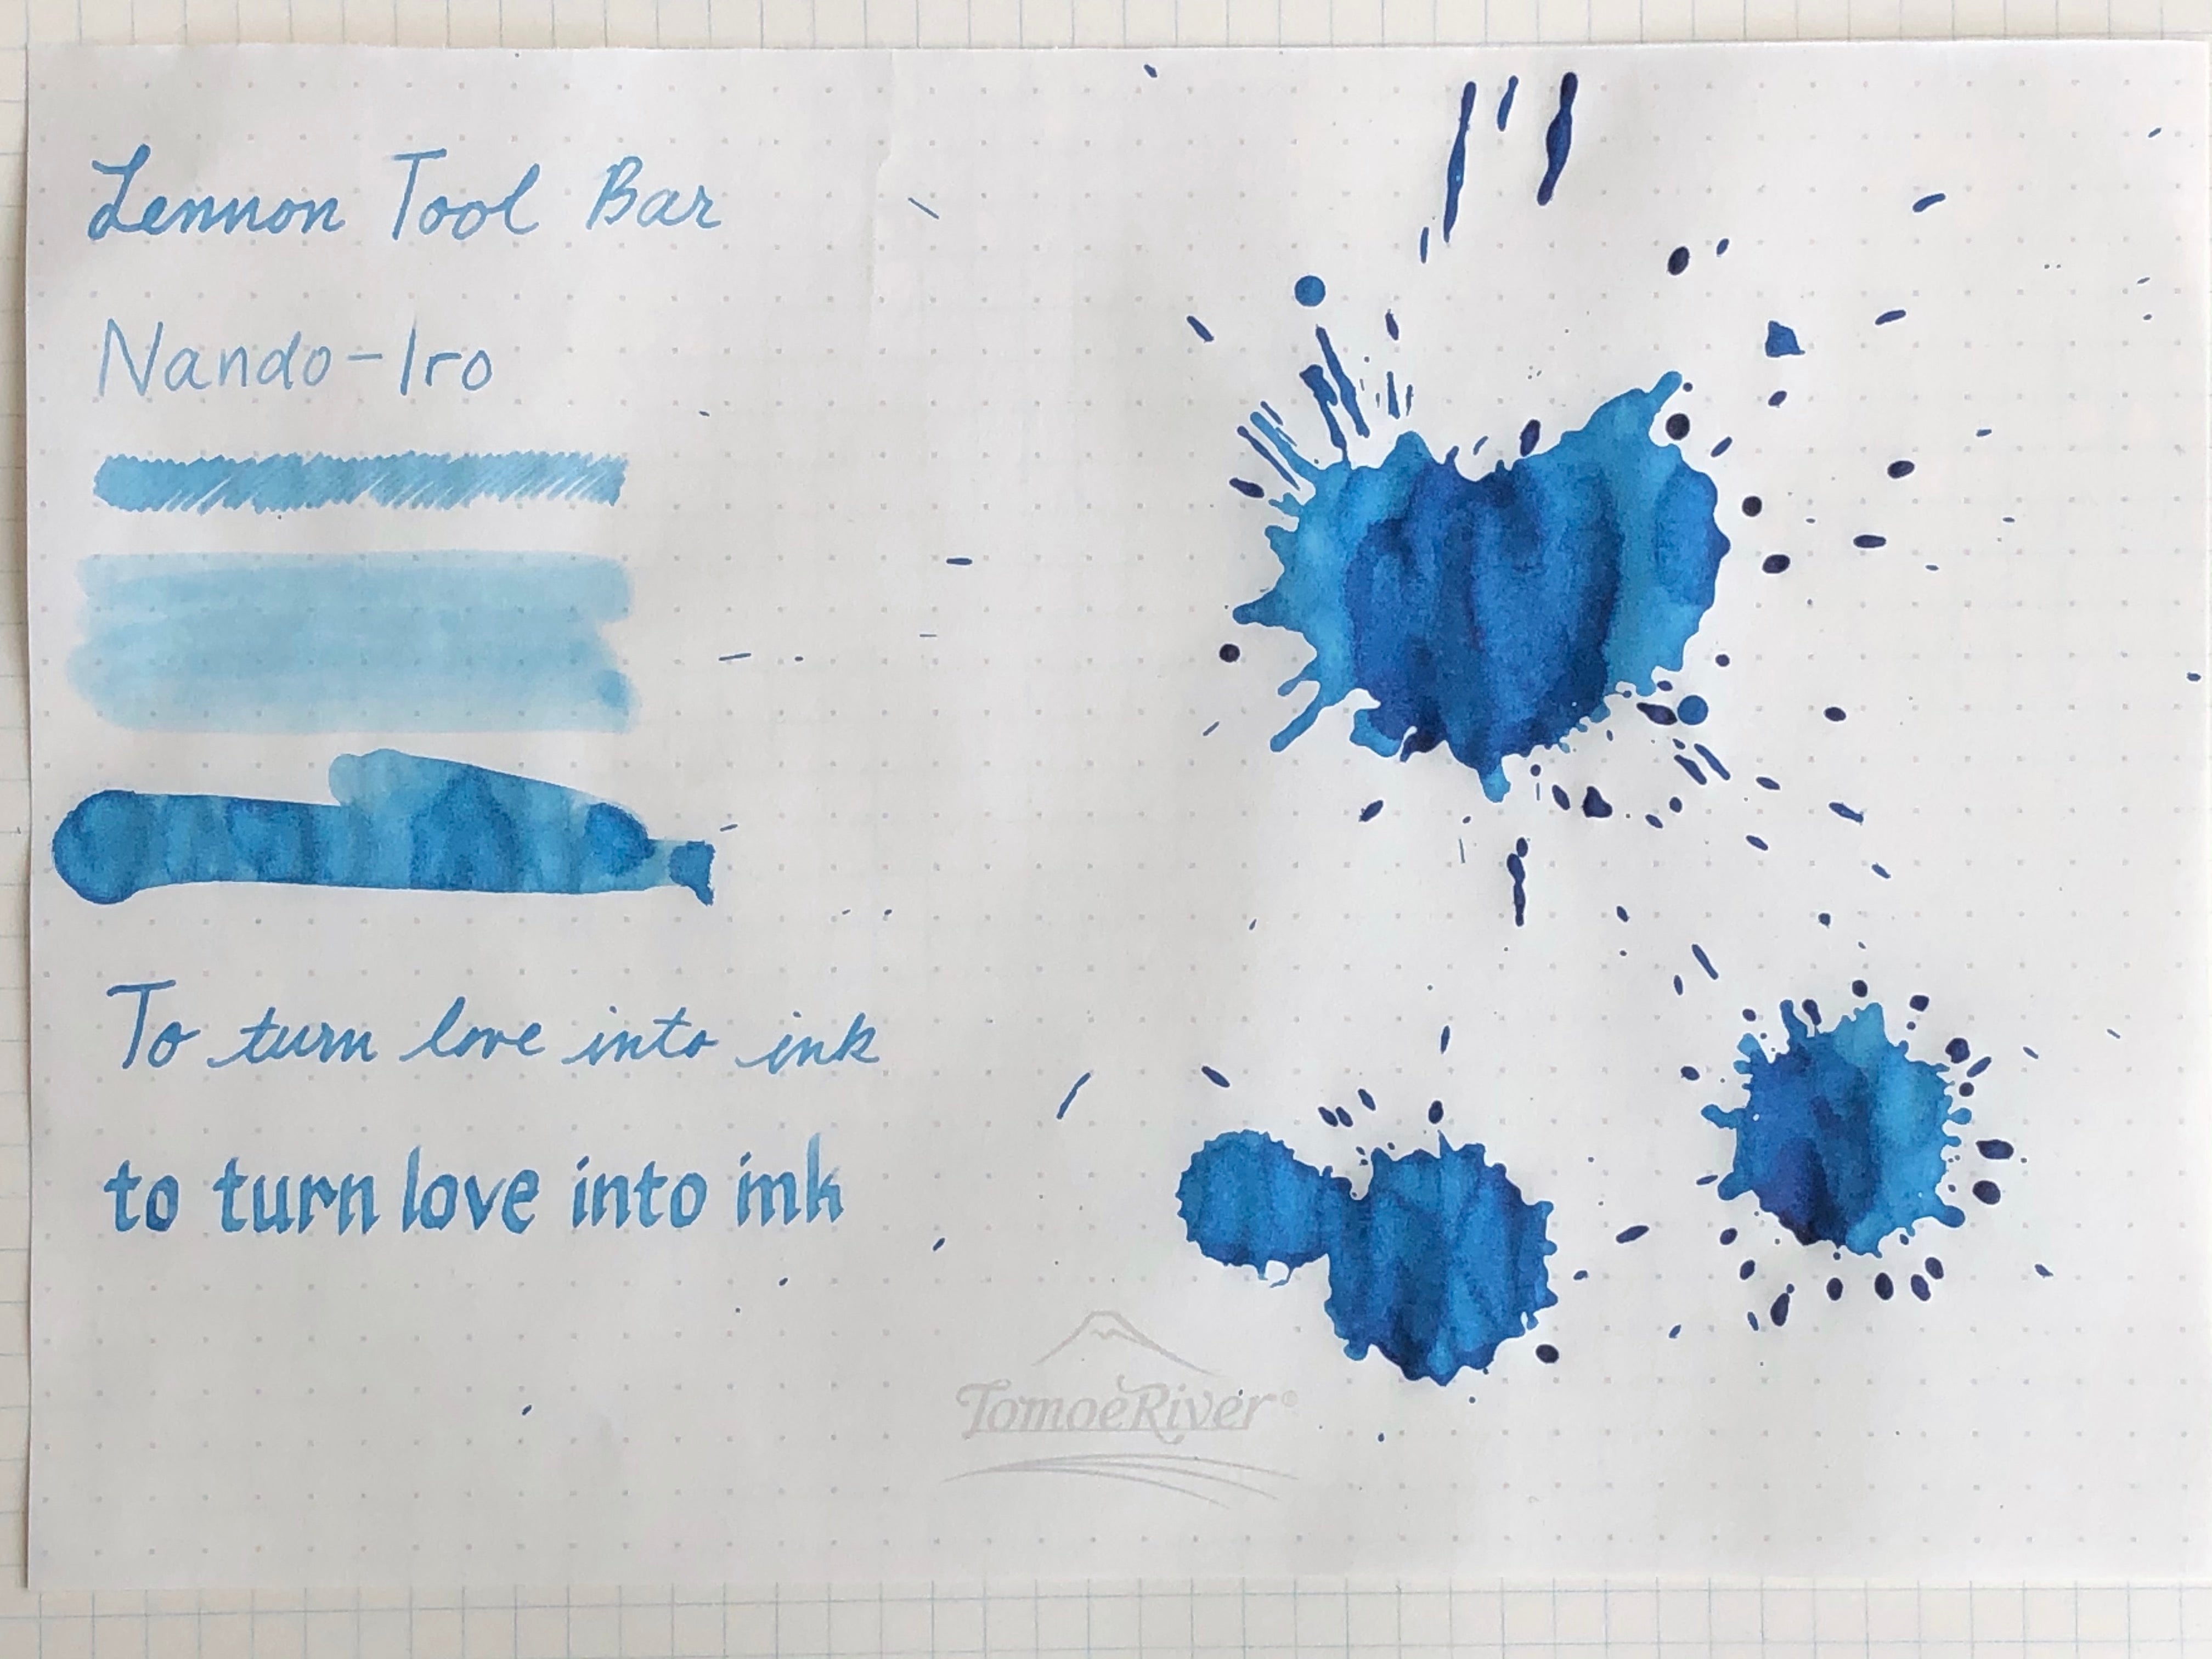 Lennon Tool Bar
Nando-Iro
To turn love into ink
to turn love into ink
TomoeRiver®